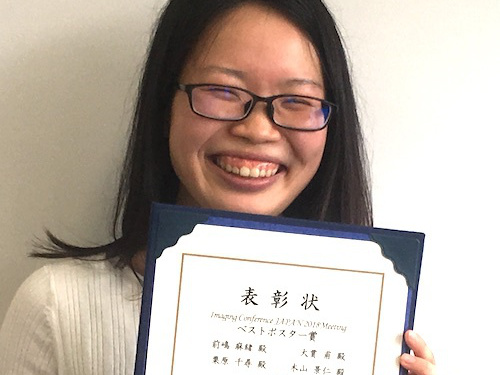 表彰状
Imaging Conference JAPAN 2018 Meeting
ベストポスター賞
前嶋 麻緒 殿 大貫 甫 殿
栗原 千尋 殿 木山 景仁 殿